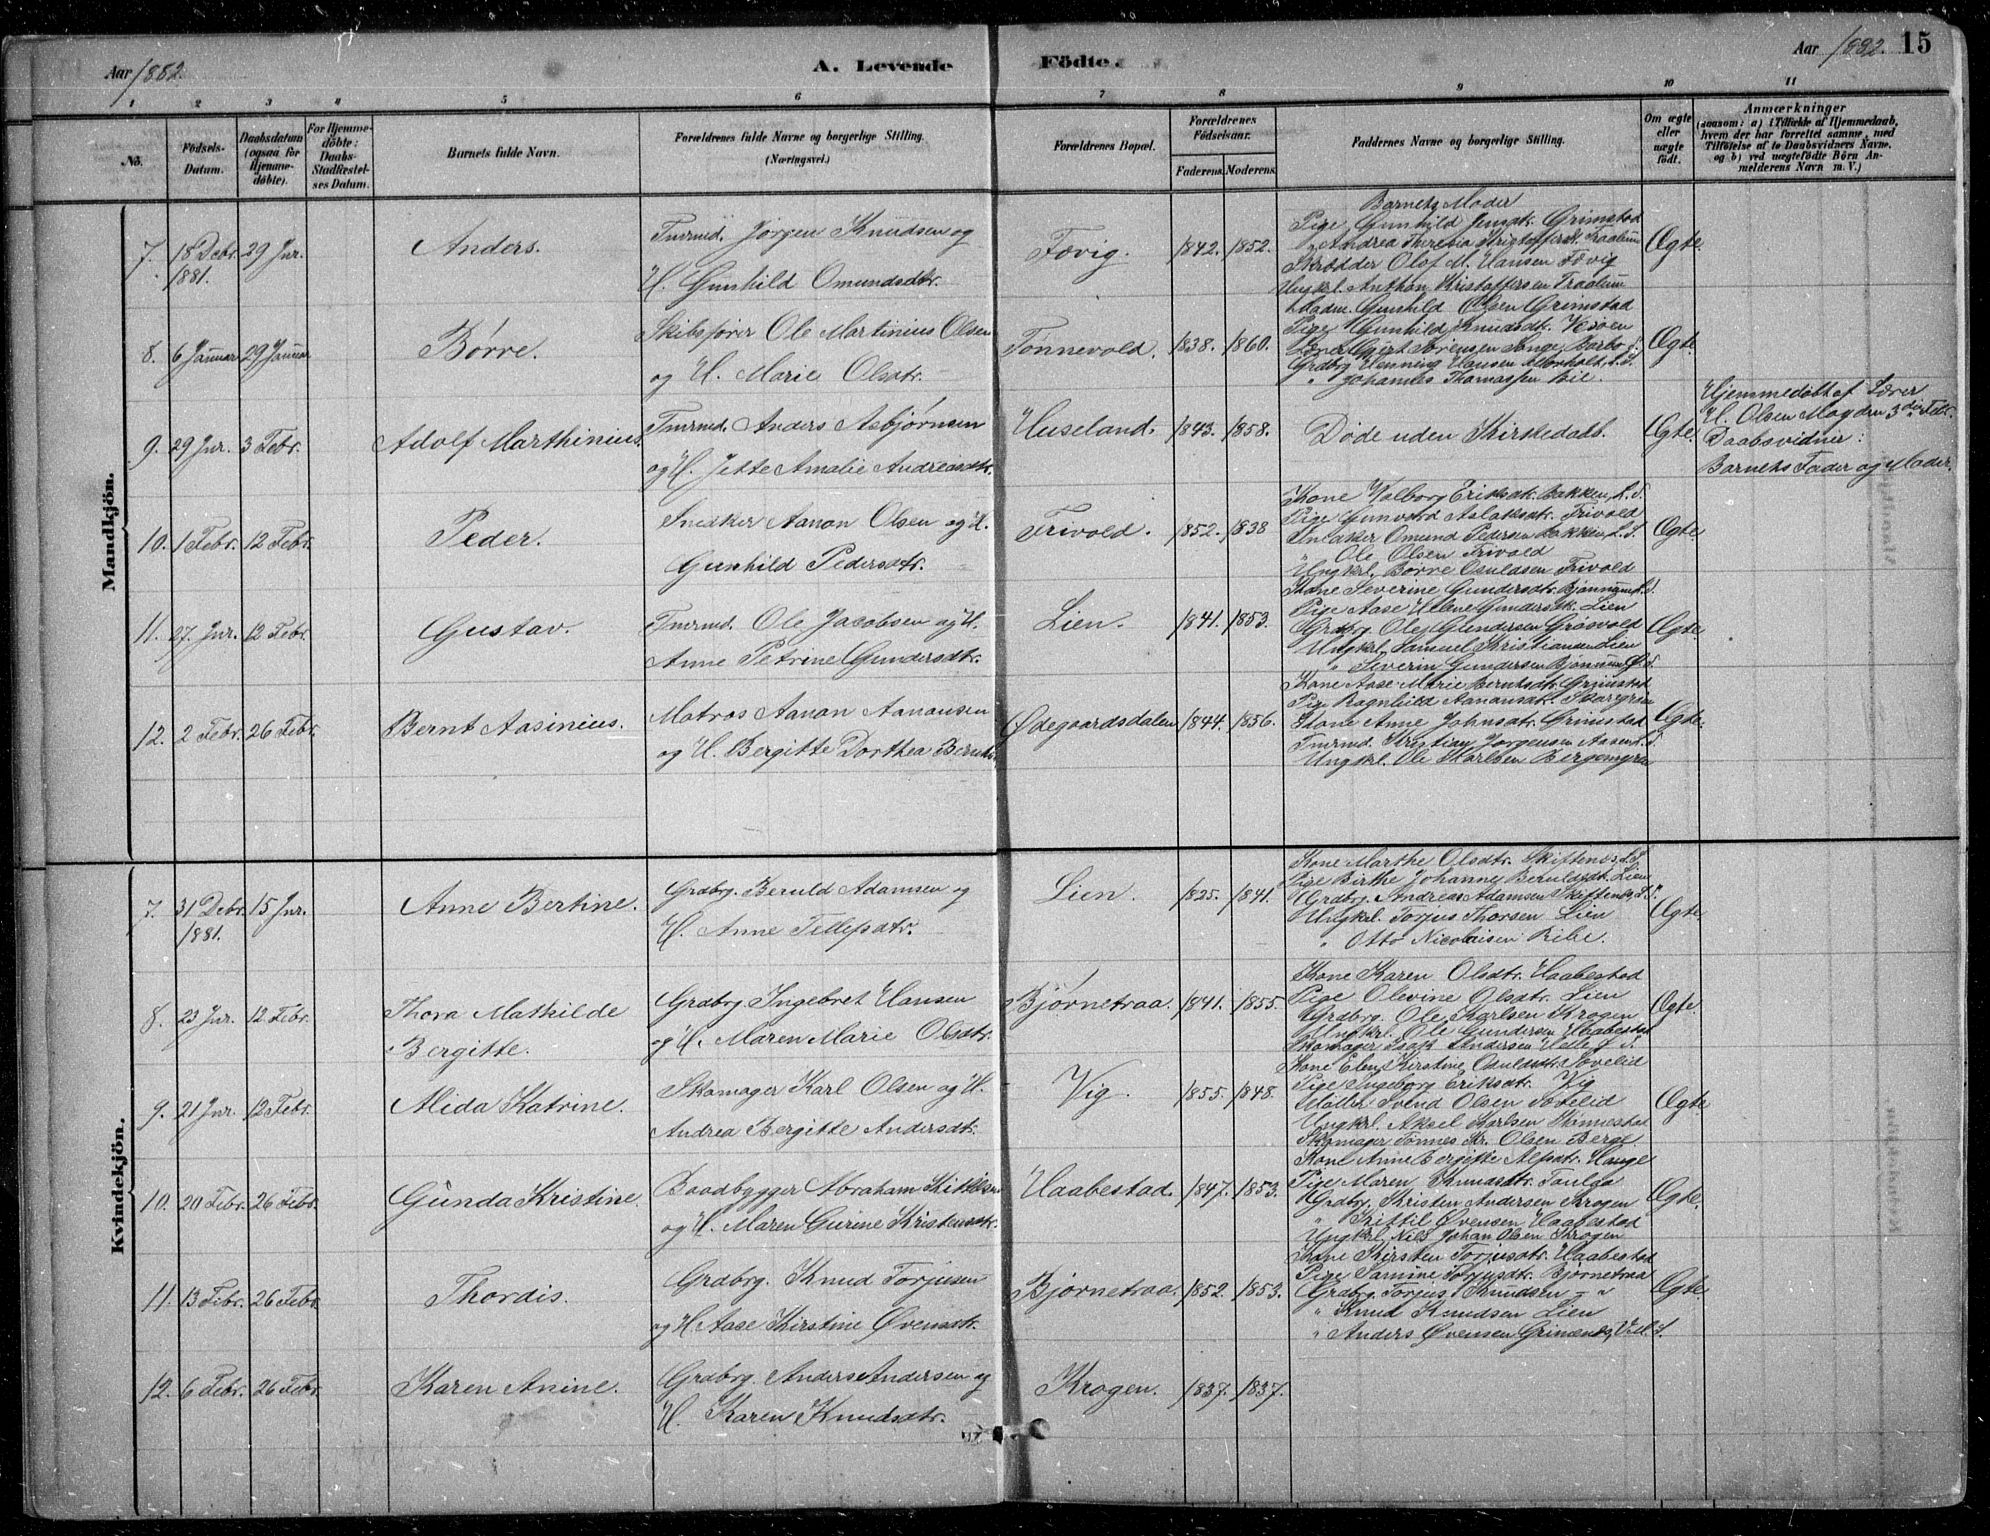 Aar 1882.
A. Levende Födte.
Aar 1882. 15
1 2 3 4 5 6 7 8 9 10 11
No.
Födsels-Datum.
Daabsdatum (ogsaa for Hjemme-döbte).
For Hjemme-döbte: Daabs-Stadfæstel-ses Datum.
Barnets fulde Navn.
Forældrenes fulde Navne og borgerlige Stilling.
(Næringsvei.)
Forældrenes Bopæl.
Forældrenes Födselsaar.
Faderens. Moderens.
Faddernes Navne og borgerlige Stilling.
Om ægte eller uægte födt.
Anmærkninger
(saasom: a) i Tilfælde af Hjemmedaab, hvem der har forrettet samme, med Tilföielse af to Daabsvidners Navne. og b) ved uægtefödte Börn An-melderens Navn m. V.)
Mandkjön.
7. 18 Debr. 1881. 29 Jnr. Anders.
Tmrmd. Jørgen Knudsen og
H. Gunhild Omundsdtr.
Fævig. 1842. 1852.
Barnets Moder
Pige Gunhild Jensdtr. Grimstad
" Andrea Theresia
Skrædder Olof M. Hansen Fævig
Ungkrl. Anthon Kristoffersen
Madm. Gunhild Olsen Grimstad
Ægte.
8. 6 Januar 29 Januar Børre.
Skibsfører Ole Martinius Olsen
og H. Marie Olsdtr.
Tønnevold. 1838. 1860.
Pige Gunhild Knudsdtr.
Lærer Gjert Sørensen Songe, Barbo
Grdbrg. Henning Hansen
" Johannes Thomassen Bie.
Ægte.
9. 29 Jnr. 3 Febr. Adolf Marthinius.
Tmrmd. Anders Asbjørnsen
og H. Jette Amalie Andreasdtr.
Huseland. 1843. 1858.
Døde uden Kirkedaab.
Ægte.
Hjemmedøbt af Lærer
H. Olsen Moy den 3die Febr.
Daabsvidner:
Barnets Fader og Moder.
10. 1 Febr. 12 Febr. Peder.
Snedker Aanon Olsen og H.
Gunhild Pedersdtr.
Frivold. 1852. 1838
Kone Valborg Eriksdtr. Bakken, L. S.
Pige Gunvold Aslaksdtr. Frivold
Snedker Omund Pedersen Bakken, L. S.
" Ole Olsen Frivold
Ungkrl. Børre Osuldsen Frivold
Ægte
11. 27. Jnr. 12 Febr. Gustav.
Tmrmd. Ole Jacobsen og H.
Anne Petrine Gundersdtr.
Lien. 1841. 1853.
Kone Severine Gundersdtr. Bjønnum
Pige Aase Helene Gundersdtr. Lien
Grdbrg. Ole Gundersen Grøsvold
Ungkrl. Samuel Kristiansen Lien
" Severin Gundersen Bjønnum
Ægte
12. 2 Febr. 26 Febr. Bernt Aasinius.
Matros Aanon Aanonsen
og H. Bergitte Dorthea
Ødegaardsdalen 1844. 1856.
Kone Aase Marie Berntsdtr. Grimstad
Pige Ragnhild Aanonsdtr.
Kone Anne Johnsdtr. Grimstad
Tmrmd. Kristian Jørgensen Aasen L. S.
Ungkrl. Ole Karlsen
Ægte.
Kvindekjön.
7. 31 Debr. 1881. 15 Jnr. Anne Bertine.
Grdbrg. Beruld Adamsen og
H. Anne Tellefsdtr.
Lien. 1825. 1841.
Kone Marthe Olsdtr. Skiftenes, L. S.
Pige Birthe Johanne Beruldsdt. Lien
Grdbrg. Andreas Adamsen Skiftenes, L. S.
Ungkrl. Torjus Thorsen Lien
" Otto Nicolaisen Ribe.
Ægte
8. 23 Jnr. 12 Febr. Thora Mathilde
Bergitte.
Grdbrg. Ingebret Hansen
og H. Maren Marie Olsdtr.
Bjørnetraa. 1841. 1855.
Kone Karen Olsdtr. Haabestad
Pige Olevine Olsdtr. Lien
Grdbrg. Ole Karlsen Krogen
Ungkrl. Ole Gundersen Haabestad
Skomager Isak Andersen
Ægte.
9. 21 Jnr. 12 Febr. Alida Katrine.
Skomager Karl Olsen og H.
Andrea Bergitte Andersdtr.
Vig. 1855. 1848.
Kone Elen Kirstine Osuldsdtr. Sovelid
Pige Ingeborg Eriksdtr. Vig
Møller Svend Olsen Sovelid
Ungkrl. Aksel Karlsen
Skomager Tønnes Kr. Olsen Berge.
Ægte
10. 20 Febr. 26 Febr. Gunda Kristine.
Baadbygger Abraham
og H. Maren Gurine Kristensdtr.
Haabestad. 1847. 1853.
Kone Anne Bergitte Alfsdtr. Hauge
Pige Maren Knudsdtr.
Grdbrg. Kristen Andersen Krogen
" Kittil Øvensen Haabestad
Ungkrl. Nils Johan Olsen Krogen
Ægte.
11. 13 Febr. 26 Febr. Thordis.
Grdbrg. Knud Torjusen
og H. Aase Kirstine Øvensdtr.
Bjørnetraa. 1852. 1853.
Kone Kirsten Torjusdtr. Haabestad
Pige Torjusdtr. Bjørnetraa
Grdbrg. Torjus Knudsen - "
" Knud Knudsen Lien
" Anders Øvensen
Ægte.
12. 6 Febr. 26 Febr. Karen Anine.
Grdbrg. Anders Andersen og
H. Karen Knudsdtr.
Krogen. 1837. 1837.